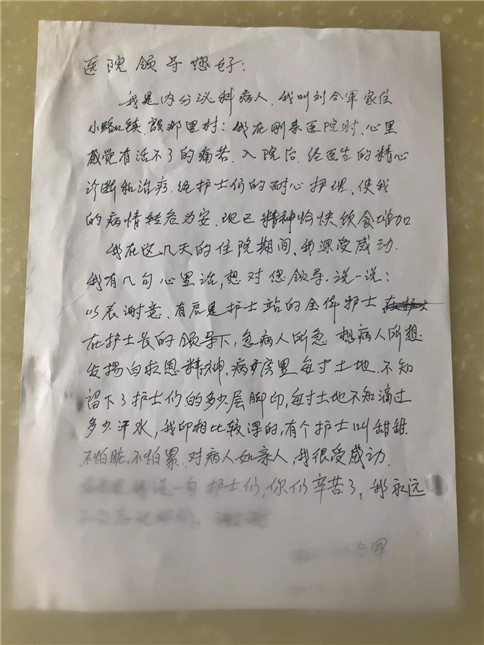 医院领导您好：
我是内分泌科病人，我叫刘令军 家住
小路口镇 那里村：我在刚来医院时，心里
感觉有活不了的痛苦。入院后，经医生的精心
诊断和治疗，经护士们的耐心护理，使我
的病情转危为安，现已精神愉快饮食增加
我在这几天的住院期间，我深受感动．
我有几句心里话，想对您领导说一说：
以表谢意，有底是护士站的全体护士
在护士长的领导下，急病人所急 想病人所想
发扬白求恩精神，病房里每寸土地 不知
留下了护士们的多少层脚印，每寸土地不知滴过
多少汗水，我印相比较深的，有个护士叫甜甜
不怕脏，不怕累．对病人如亲人，我很受感动．
说一句护士们，你们辛苦了，我永远